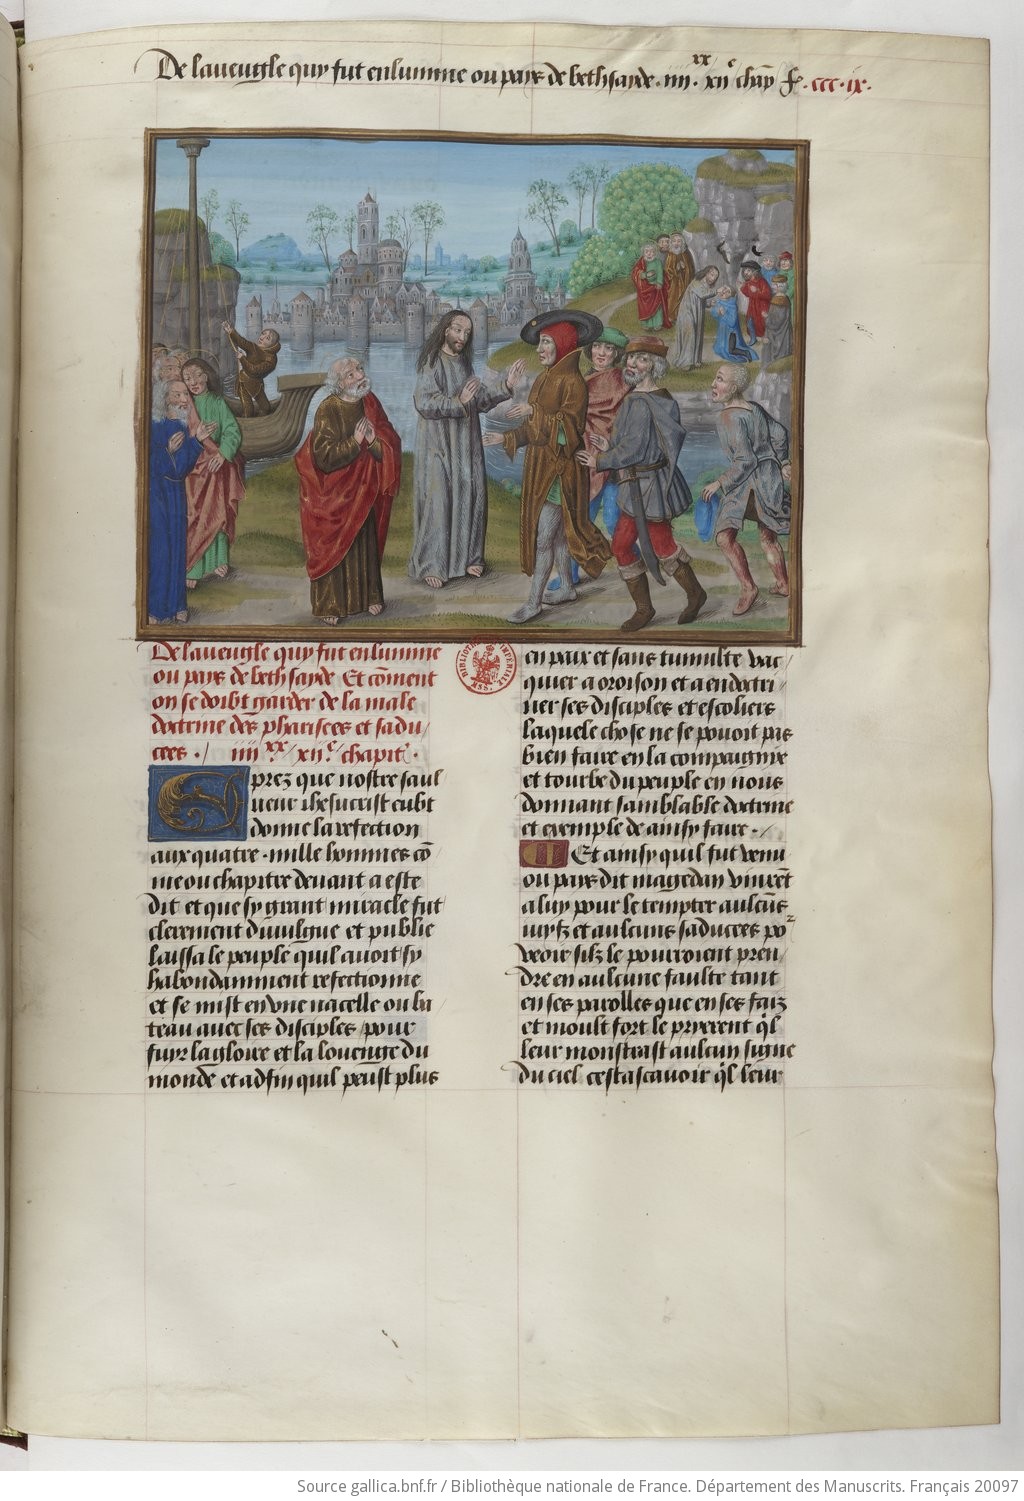 De laveugle quy fut enlumine ou pays de bethsayde . iiii.xx xiie chap̄ f. ccc.ix.
De laveugle quy fut enlumine
ou pays de bethsayde Et cōment
on se doibt garder de la male
doctrine des pharisees et sadu/
cees . / iiii.xx xii.e chapit̄ .
prez que nostre saul
ueur ihesucrist eubt
donne la refection
aux quatre . mille hommes cō
me ou chapitre deuant a este
dit et que sy grant miracle fut
clerement diuulgue et publie
laissa le peuple quil auoit sy
habondamment refectionne
et se mist en vne nacelle ou ba
teau auec ses disciples / pour
fuyr la gloire et la louenge du
monde et adfin quil peust plus
BIBLIOTHEQUE IMPERIALE MSS.
en paix et sans tumulte vac/
quier a oroison et a endoctri/
ner ses disciples et escoliers
laquele chose ne se pouoit pas
bien faire en la compaignie
et tourbe du peuple en nous
donnant samblable doctrine
et exemple de ainsy faire . /
Et ainsy quil fut venu
ou pays dit magedan vindrēt
a luy pour le tempter aulcūs
iuyfz et aulcuns saducees po2
veoir silz le pourroient pren/
dre en aulcune faulte tant
en ses parolles que en ses faiz
et moult fort le pryerent q̄l
leur monstrast aulcun signe
du ciel cest ascauoir q̄l leur
Source gallica.bnf.fr / Bibliothèque nationale de France. Département des Manuscrits. Français 20097